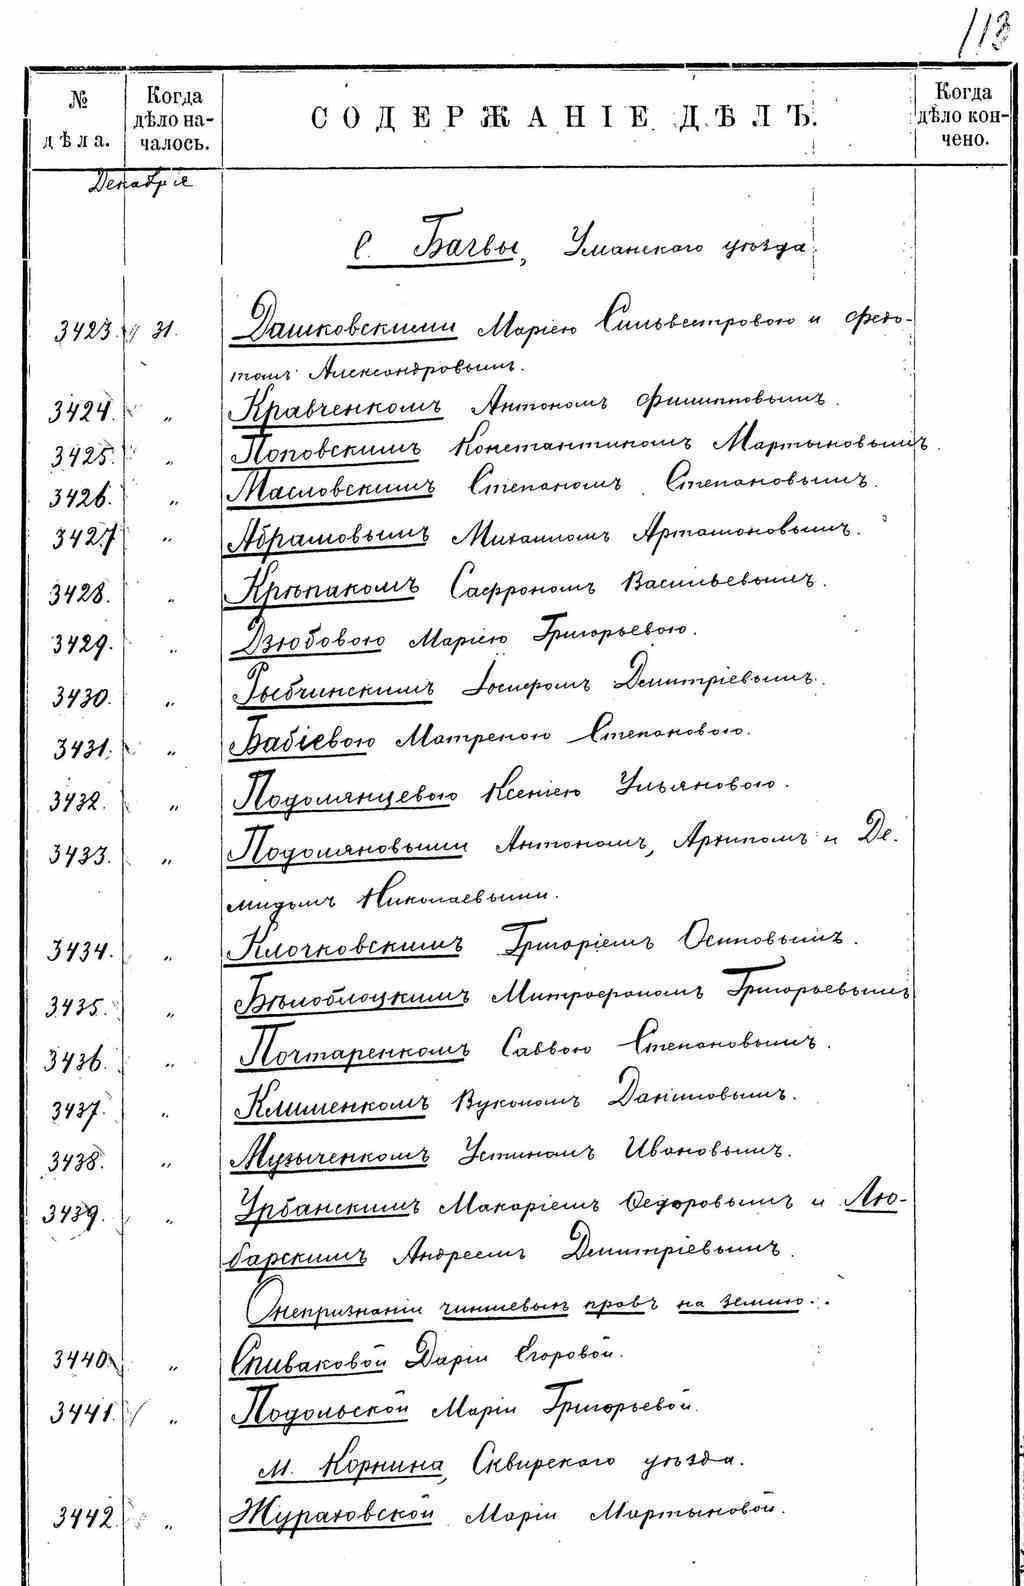 113
№ дѣла. Когда дѣло началось. СОДЕРЖАНІЕ ДѢЛЪ. Когда дѣло кончено.
Декабріе
С. Багвы, Уманскаго уѣзда
3423. 31. Дашковскими Маріею Сильвестровою и Ѳедо-
томъ Александровымъ.
3424. „ Кравченкомъ Антономъ Филипповымъ.
3425. „ Поповскимъ Константиномъ Мартыновымъ.
3426. „ Масловскимъ Степаномъ Степановымъ.
3427 „ Абрамовымъ Михаиломъ Артамоновымъ.
3428. „ Крѣпакомъ Сафрономъ Васильевымъ.
3429. „ Дзюбовою Маріею Григорьевою.
3430. „ Рыбчинскимъ Іосифомъ Дмитріевымъ.
3431. „ Бабіевою Матреною Степановою.
3432. „ Подолянцевою Ксеніею Ульяновою.
3433. „ Подоляновыми Антономъ, Архипомъ и Де-
мидомъ Николаевыми.
3434. „ Клочковскимъ Григоріемъ Осиповымъ.
3435. „ Бѣлоблоцкимъ Митрофаномъ Григорьевымъ
3436. „ Почтаренкомъ Саввою Степановымъ.
3437. „ Клименкомъ Вуколомъ Даниловымъ.
3438. „ Музыченкомъ Устиномъ Ивановымъ.
3439. „ Урбанскимъ Макаріемъ Ѳедоровымъ и Лю-
барскимъ Андреемъ Дмитріевымъ.
О непризнаніи чиншевыхъ правъ на землю.
3440. „ Спиваковой Даріи Егоровой.
3441. „ Подольской Маріи Григорьевой.
м. Корнина, Сквирскаго уѣзда.
3442. „ Жураховской Маріи Мартыновой.